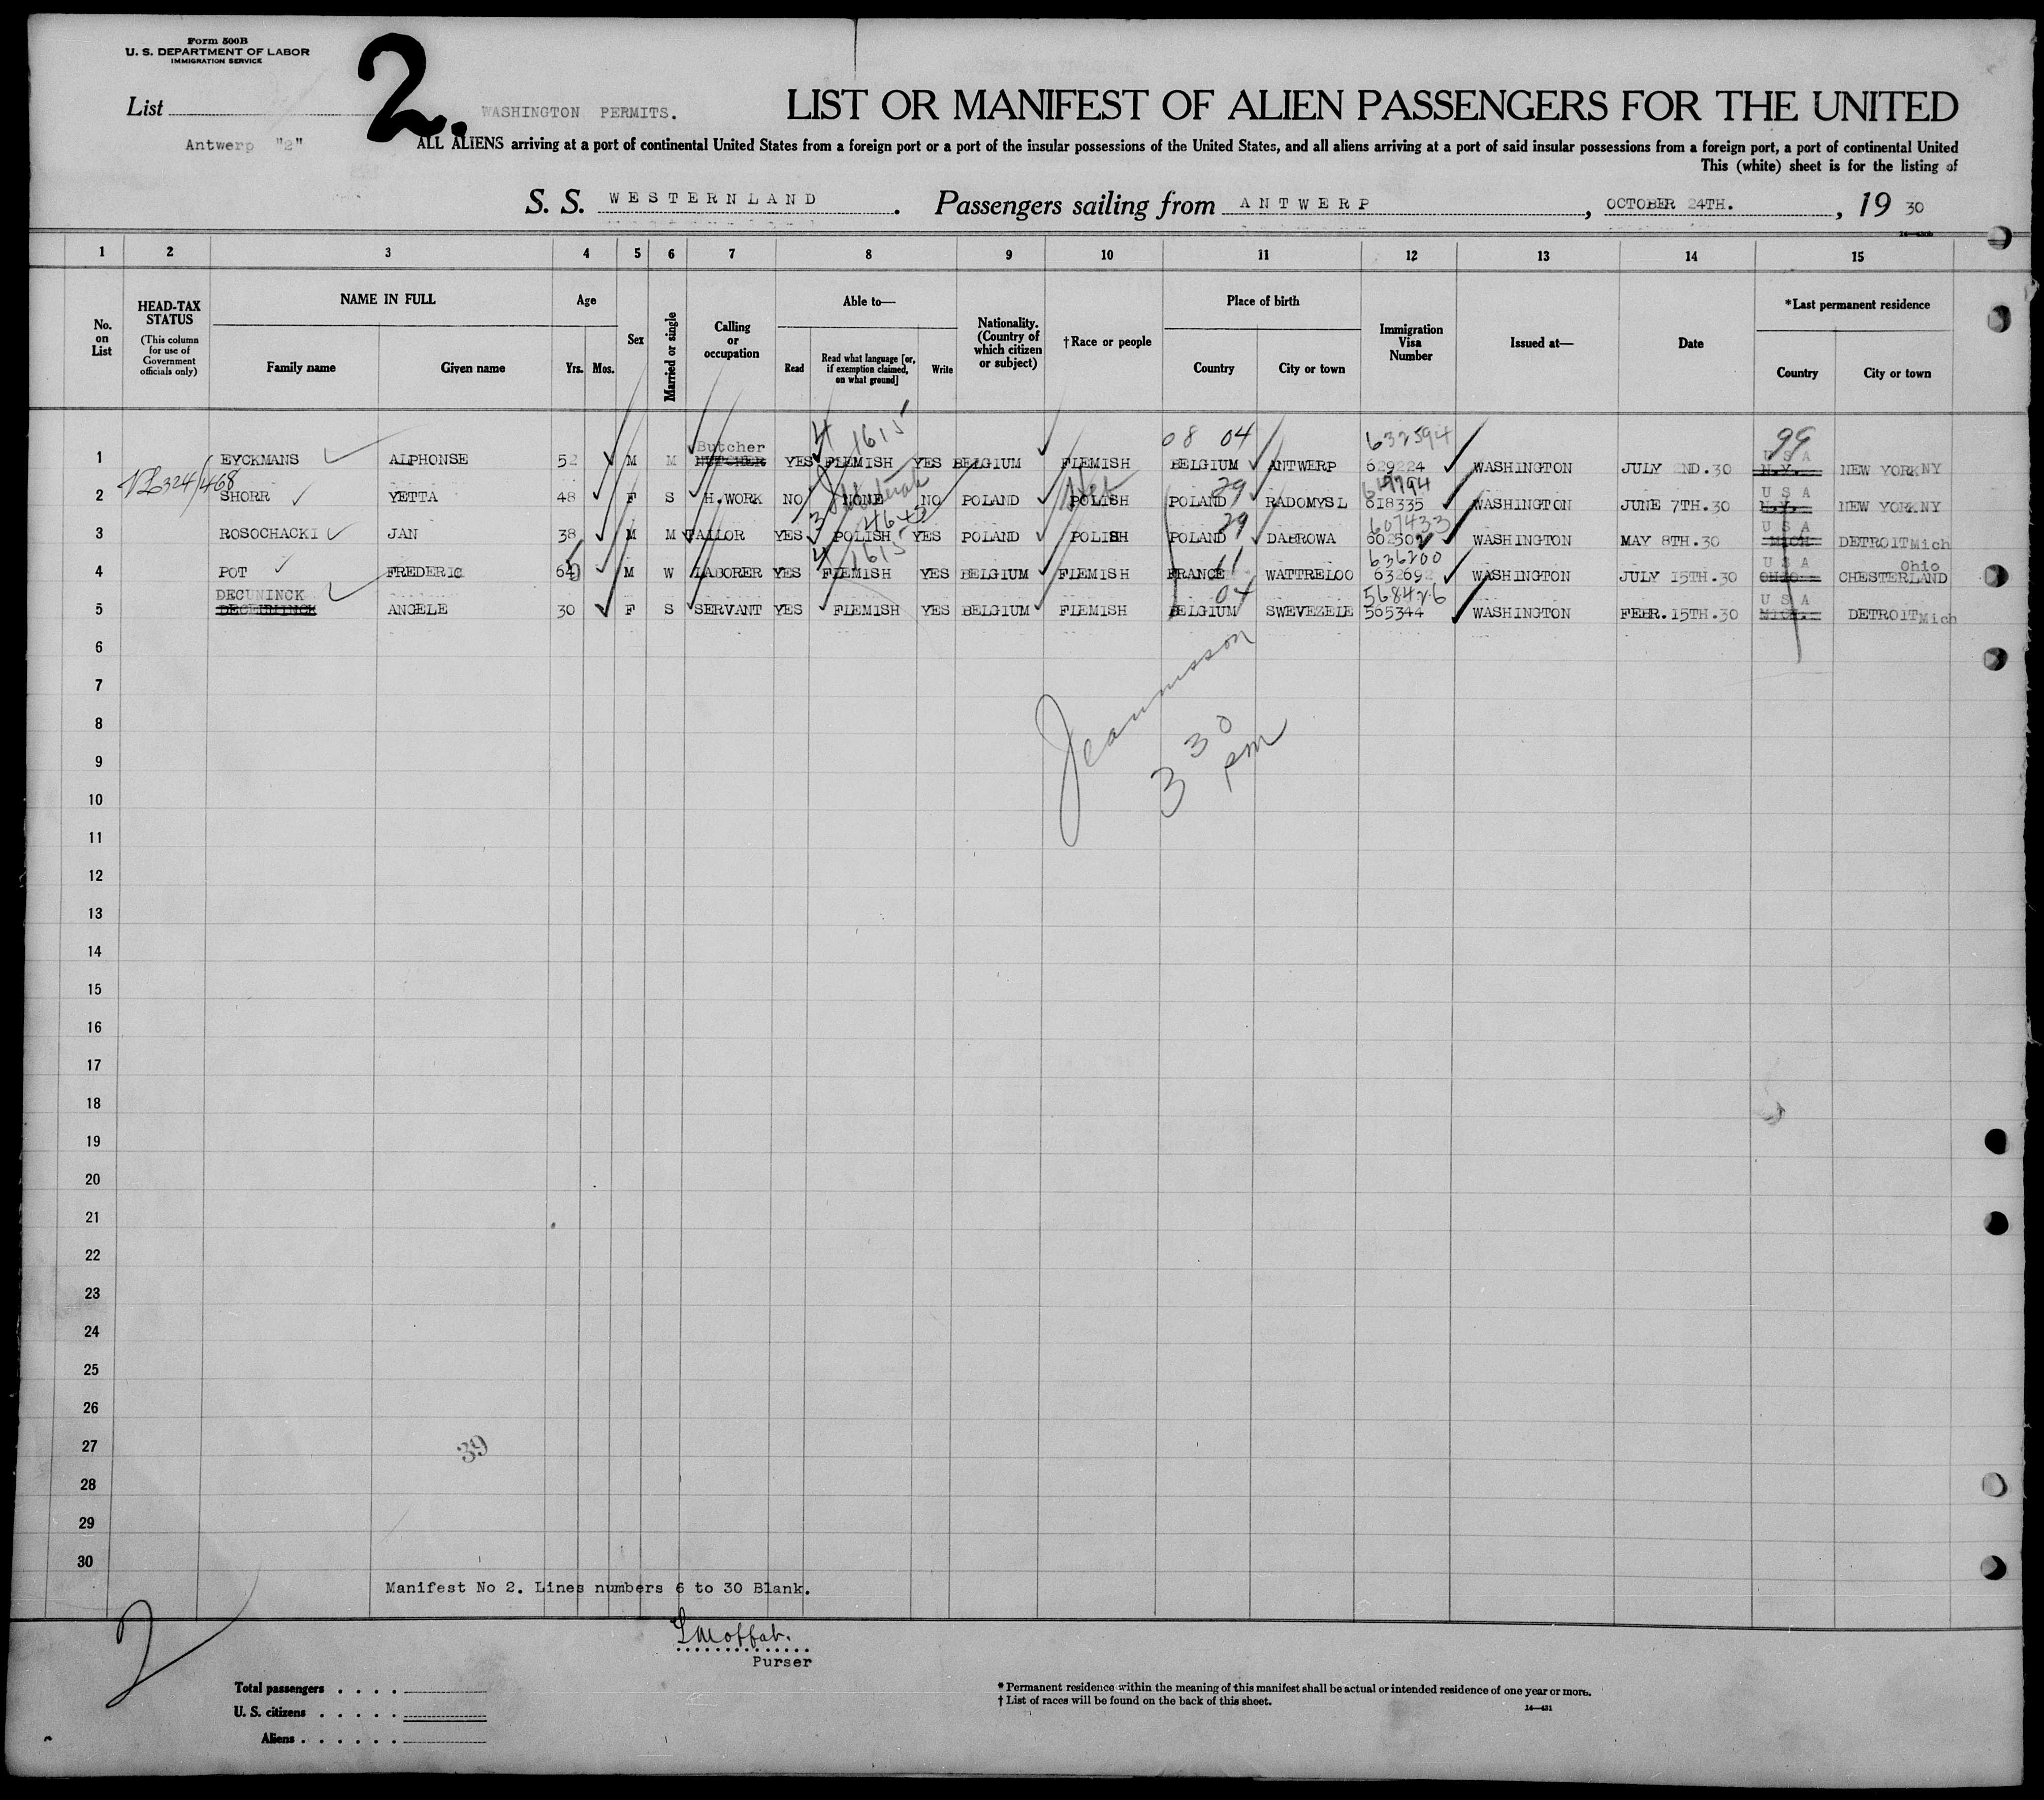 Form 500B
U. S. DEPARTMENT OF LABOR
IMMIGRATION SERVICE
List
2.
WASHINGTON PERMITS.
LIST OR MANIFEST OF ALIEN PASSENGERS FOR THE UNITED
Antwerp "2"
ALL ALIENS arriving at a port of continental United States from a foreign port or a port of the insular possessions of the United States, and all aliens arriving at a port of said insular possessions from a foreign port, a port of continental United
This (white) sheet is for the listing of
S. S. WESTERNLAND. Passengers sailing from ANTWERP, OCTOBER 24TH., 19 30
1 2 3 4 5 6 7 8 9 10 11 12 13 14 15
No. on List
HEAD-TAX STATUS (This column for use of Government officials only)
NAME IN FULL
Family name Given name
Age
Yrs. Mos.
Sex
Married or single
Calling or occupation
Able to—
Read Read what language [or, if exemption claimed, on what ground] Write
Nationality. (Country of which citizen or subject)
†Race or people
Place of birth
Country City or town
Immigration Visa Number
Issued at—
Date
*Last permanent residence
Country City or town
Butcher 4 1615 08 04 632594 99
U S A
1 EYCKMANS ALPHONSE 52 M M YES FLEMISH YES BELGIUM FLEMISH BELGIUM ANTWERP 629224 WASHINGTON JULY 2ND.30 N.Y. NEW YORK NY
29 U S A
2 SHORR YETTA 48 F S H.WORK NO NONE NO POLAND POLISH POLAND RADOMYSL 618335 WASHINGTON JUNE 7TH.30 N.Y. NEW YORK NY
3 4642 29 607433 U S A
3 ROSOCHACKI JAN 38 M M TAILOR YES POLISH YES POLAND POLISH POLAND DABROWA 602502 WASHINGTON MAY 8TH.30 MICH DETROIT Mich
5 4 1615 11 636200 U S A Ohio
4 POT FREDERIC 64 M W LABORER YES FLEMISH YES BELGIUM FLEMISH FRANCE WATTRELOO 632692 WASHINGTON JULY 15TH.30 OHIO CHESTERLAND
DECUNINCK 04 568426 U S A
5 ANGELE 30 F S SERVANT YES FLEMISH YES BELGIUM FLEMISH BELGIUM SWEVEZELE 565344 WASHINGTON FEBR.15TH.30 MICH. DETROIT Mich
6
7
8
3 30 pm
9
10
11
12
13
14
15
16
17
18
19
20
21
22
23
24
25
26
27
39
28
29
30
Manifest No 2. Lines numbers 6 to 30 Blank.
2
Purser
Total passengers . . . .
U. S. citizens . . . . .
Aliens . . . . . .
* Permanent residence within the meaning of this manifest shall be actual or intended residence of one year or more.
† List of races will be found on the back of this sheet.
14—431